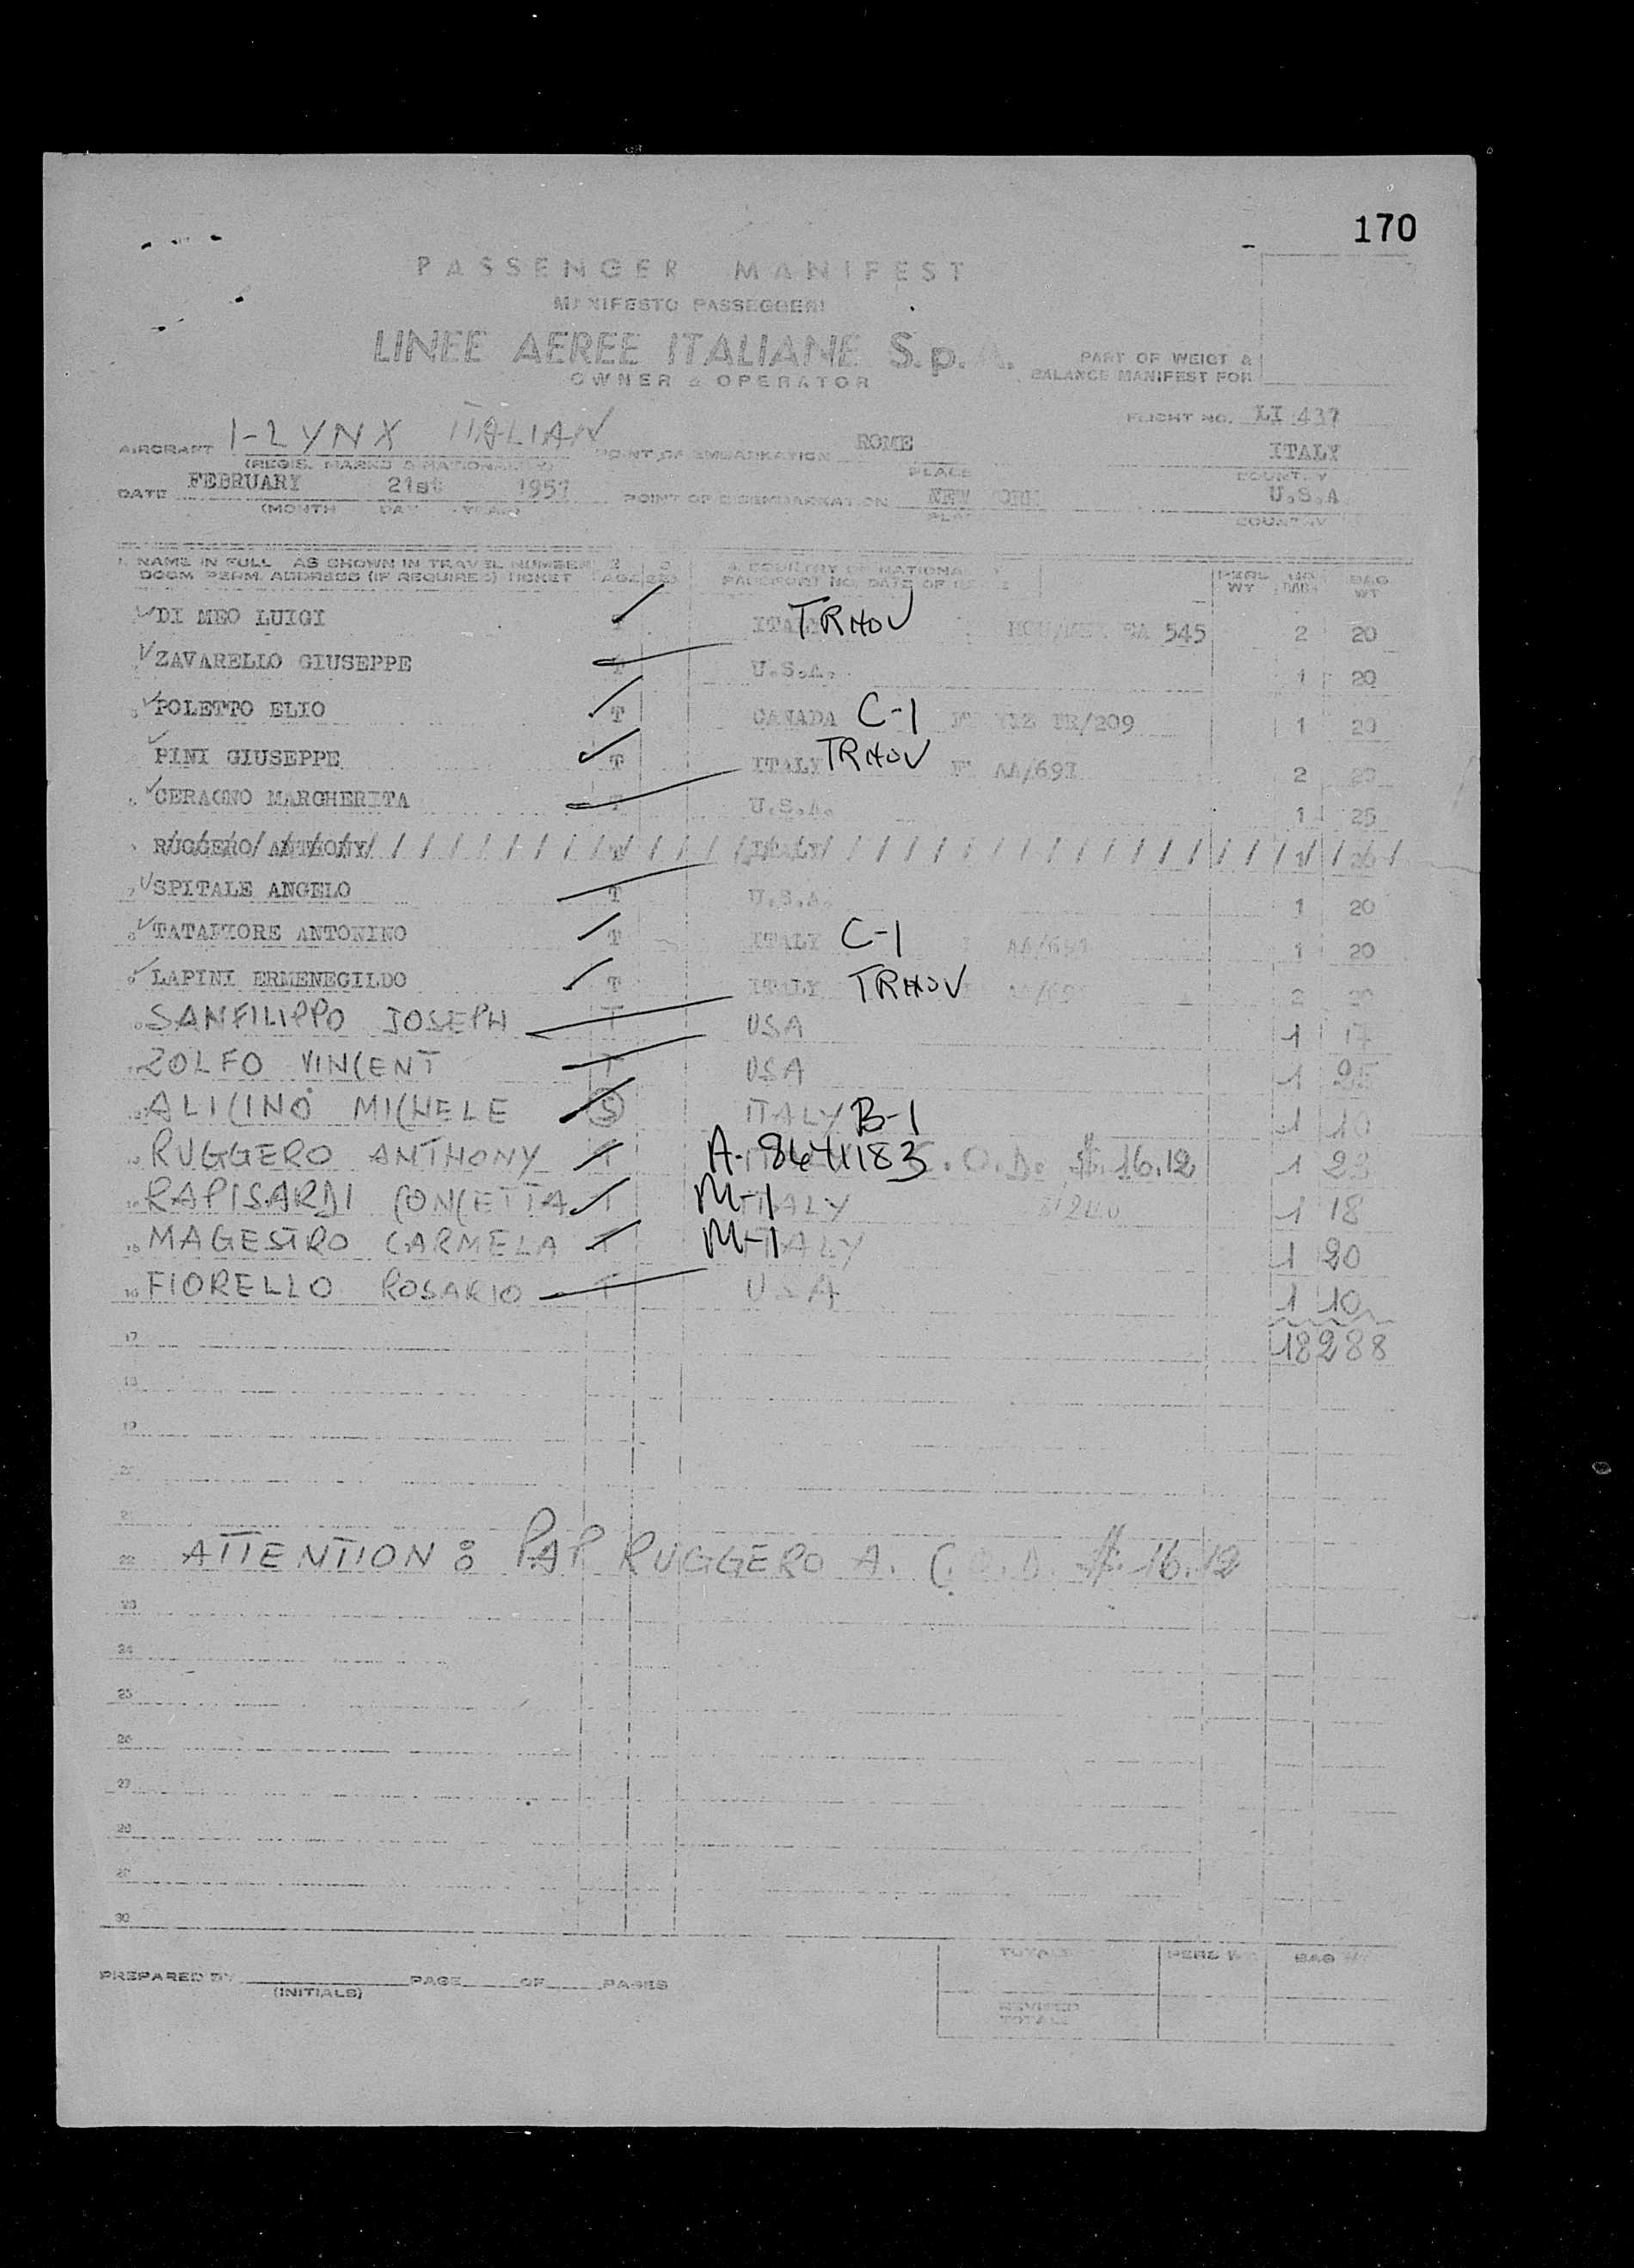 170
PASSENGER MANIFEST
MANIFESTO PASSEGGERI
LINEE AEREE ITALIANE S.p.A.
OWNER & OPERATOR
PART OF WEIGT &
BALANCE MANIFEST FOR
FLIGHT NO. LI 437
AIRCRAFT I-LYNX ITALIAN POINT OF EMBARKATION ROME ITALY
(REGIS. MARKS & NATIONALITY) PLACE COUNTRY
DATE FEBRUARY 21st 1957 POINT OF DISEMBARKATION NEW YORK U.S.A.
(MONTH DAY YEAR) PLACE COUNTRY
1. NAME IN FULL AS SHOWN IN TRAVEL NUMBER 2 3 4. COUNTRY OF NATIONALITY PERS. NO BAG
DOCM. PERM. ADDRESS (IF REQUIRED) TICKET AGE SEX PASSPORT NO. DATE OF WT BAGS WT
DI MEO LUIGI T ITALY TRHOV 545 2 20
ZAVARELLO GIUSEPPE T U.S.A. 1 20
POLETTO ELIO T CANADA C-1 PR/209 1 20
PINI GIUSEPPE T ITALY TRHOV AA/691 2 20
CERAGNO MARGHERITA T U.S.A. 1 25
RUGGERO ANTHONY T ITALY 1 20
7 SPITALE ANGELO T U.S.A. 1 20
8 TATAFIORE ANTONINO T ITALY C-1 AA/691 1 20
9 LAPINI ERMENEGILDO T ITALY TRHOV 2 20
SANFILIPPO JOSEPH T USA 1 17
ZOLFO VINCENT T USA 1 25
ALICINO MICHELE S ITALY B-1 1 10
RUGGERO ANTHONY T A-8641183 C.O.D. $. 16.12 1 23
RAPISARDI CONCETTA T M-1 ITALY 1 18
15 MAGESTRO CARMELA T M-1 ITALY 1 20
16 FIORELLO ROSARIO T USA 1 10
17 18 288
18
19
20
21
22 ATTENTION: PAP RUGGERO A. C.O.D. $. 16.12
23
24
25
26
27
28
29
30
TOTALS PERS WT BAG WT
PREPARED BY PAGE OF PAGES
(INITIALS)
REVISED
TOTALS